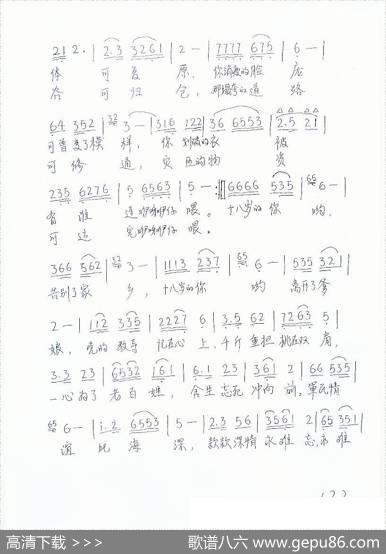 2̇1̇ 2̇· | 2.3 3261 | 2 — | 7777 675 | 6 — |
体 可 复 原, 你消瘦的脸 庞
可 归 包, 的道 路
64 352 | 3 — | 316 122 | 36 6553 | 2.5 21 |
可曾变了模 样, 你 的衣 被
可 修 通, 灾区的物 资
235 6276 | 5 6563 | 5 — :‖ 6666 535 | 6 — |
有 谁 连咿咿呀呀 喂。 十八岁的你 哟,
可 运 完咿咿呀呀 喂。
366 562 | 3 — | 1113 237 | 6 — | 535 321 |
告别了家 乡, 十八岁的你 哟 离开了爹
2 — | 112 335 | 2227 6 | 3.5 62 | 7263 5 |
娘, 党的教导 记在心 上, 千斤重担 挑在双肩,
3.3 23 | 6532 161 | 6.1 23 | 361 2 | 66 535 |
一心为了 老百姓, 舍生忘死 冲向 前。军民情
6 — | 1.2 6553 | 5 — | 2.3 56 | 3561 2 | 65 351 |
谊 比海 深, 款款深情 永难 忘,永难
(2)
高清下载 >>>
歌谱八六 www.gepu86.com